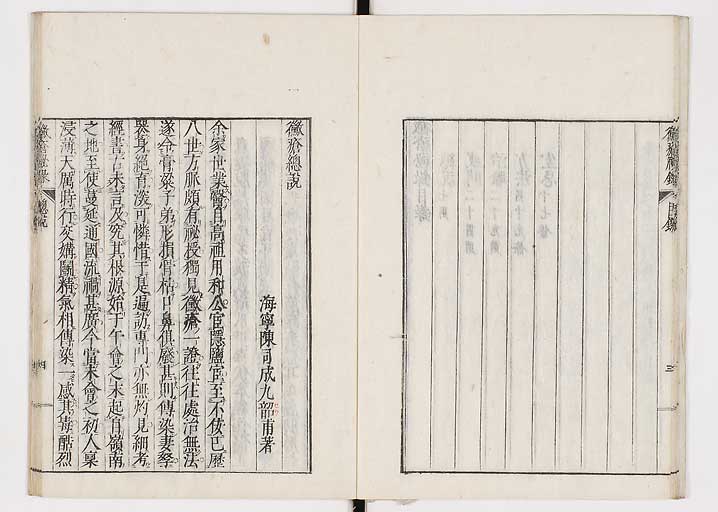 黴瘡秘錄
目錄
三
黴瘡總說
海寧陳司成九韶甫著
余家世業醫自高祖用和公官隱鹽官至不佞已歷
八世方脈頗有祕授獨見黴瘡一證往往處治無法
遂令膏粱子弟形損骨枯口鼻俱廢甚則傳染妻孥
喪身絕育深可憐惜于是遍訪專門亦無灼見細考
經書古未言及究其根源始于午會之末起自嶺南
之地至使蔓延通國流禍甚廣今當未會之初人稟
浸薄天厲時行交媾鬭精氣相傳染一感其毒酷烈
總說
四